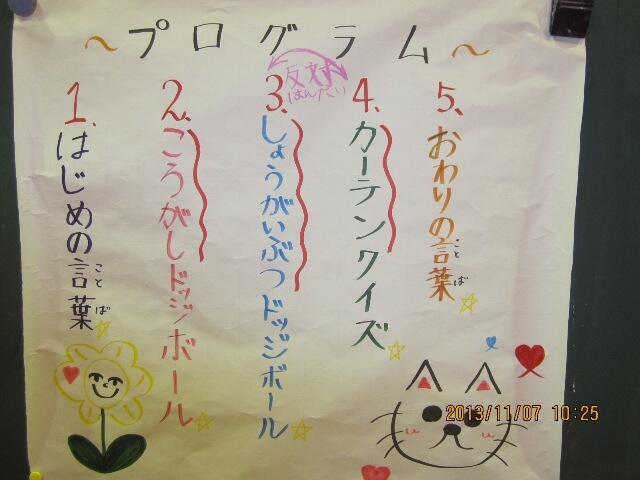 ～プログラム～
反対
はんたい
1.はじめの言葉
ことば
2.ころがしドッジボール
3.しょうがいぶつドッジボール
4.カーテンクイズ
5.おわりの言葉
ことば
2013/11/07 10:25